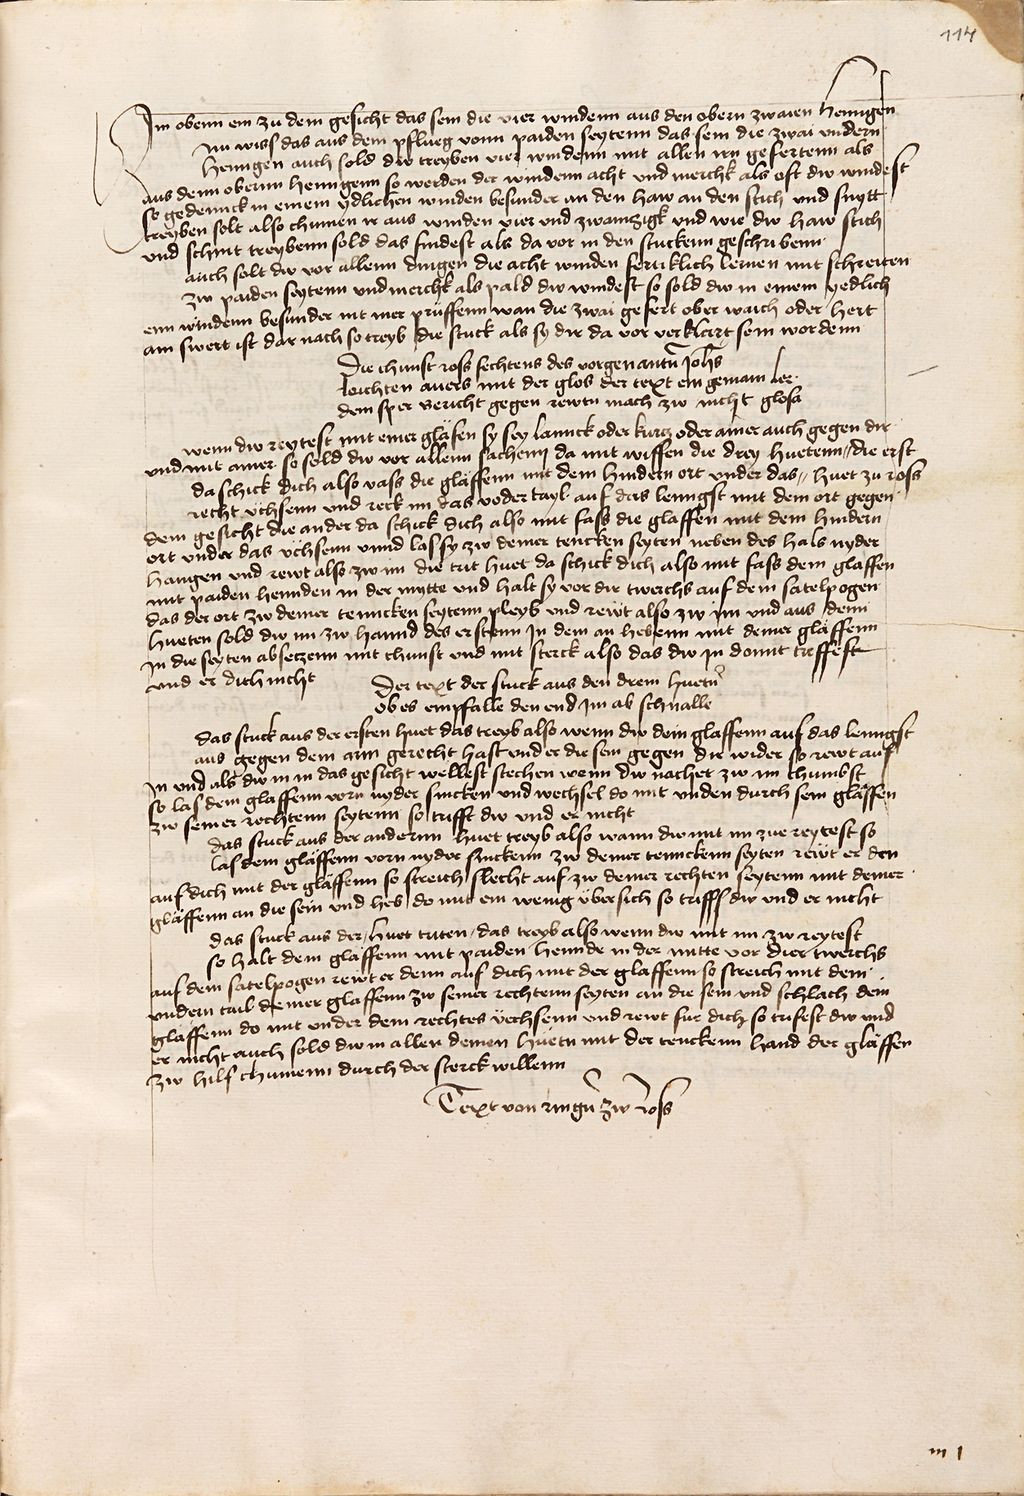 114
Im obenn ein zu dem gesicht das sein die vier windenn aus den obern zwaien henngen
Nu wiss das aus dem pflueg vonn paiden seytenn das sein die zwai undern
henngen auch sold dw treyben vier windenn mit allen irn gefertenn als
aus denn obernn henngenn so werden der windenn acht und merchk als oft dw windest
so gedennck in einem ydlichen winden besunder an den haw an den stich und snytt
treyben solt also chumen ir aus winden vier und zwainzigk und wie dw haw stich
und schnit treybenn sold das findest als da vor in den stuckenn geschribenn
auch solt dw vor allenn dingen die acht winden ferttklich lernen mit schreiten
zw paiden seytenn und merchk als pald dw windest so sold dw in einem yedlich
enn windenn besunder nit mer prüffenn wan die zwai gefert ober waich oder hert
am swert ist dar nach so treyb die stuck als sy dir da vor verklärt sein wordenn
Die chunst ross fechtens des vorgenantn Johs
leichten auers mit der glos der text ein gemain ler
dein sper bericht gegen rewtn mach zw nicht glosa
wenn dw reytest mit einer glafen sy sey lannck oder kurcz oder ainer auch gegen dir
und mit ainer so sold dw vor allenn sachenn da mit wissen die drey huetenn die erst
da schick dich also vass die gläffenn mit dem hindern ort under das huet zu ross
recht üchsenn und reck im das voder tayl auf das lenngst mit dem ort gegen
dem gesicht die ander da schick dich also mit fass die glaffen mit dem hindern
ort under das üchsenn unnd las sy zw deiner tencken seyten neben des hals nyder
hangen und rewt also zw im die trit huet da schick dich also mit fass dein glaffen
mit paiden hennden in der mytte und halt sy vor dir twerchs auf dem satelpogen
das der ort zw deiner tenncken seytenn pleyb und rewt also zw im und aus denn
hueten sold dw im zw hannd des erstenn In dem an hebenn mit deiner gläffenn
in die seyten abseczenn mit chunst und mit sterck also das dw in domit treffest
und er dich nicht
Der text der stuck aus den drein huetn
Ob es empfalle den end im ab schnalle
das stuck aus der ersten huet das treyb also wenn dw dein glaffenn auf das lenngst
aus gegen dem am gerecht hast und er die sein gegen dir wider so rewt auf
in und als dw in in das gesicht wellest stechen wenn dw nachet zw im chumbst
so las dein glaffenn vorn nyder sincken und wechsel do mit unden durch sein gläffen
zw seiner rechtenn seytenn so trifft dw und er nicht
das stuck aus der anderrnn huet treyb also wann dw mit im zue reytest so
las dein gläffenn vorn nyder sinckenn zw deiner tennckenn seyten rewt er den
auf dich mit der gläffenn so streich slecht auf zw deiner rechten seytenn mit deiner
gläffenn an die sein und heb do mit ein wenig über sich so triffs dw und er nicht
das stuck aus der huet triten das treyb also wenn dw mit im zw reytest
so halt dein glaffenn mit paiden hennde in der mitte vor dier twerchs
auf dem satelpogen rewt er denn auf dich mit der glaffenn so streich mit dem
undern tail deiner glaffenn zw seiner rechtenn seyten an die sein und schlach dein
glaffenn do mit under dein rechtes üechsenn und rewt fur dich so trifest dw und
er nicht auch sold dw in allen deinen hüetn mit der tenckenn hand der gläffen
zw hilf chumenn durch der sterck willenn
Text von ringn zw ross
m 1